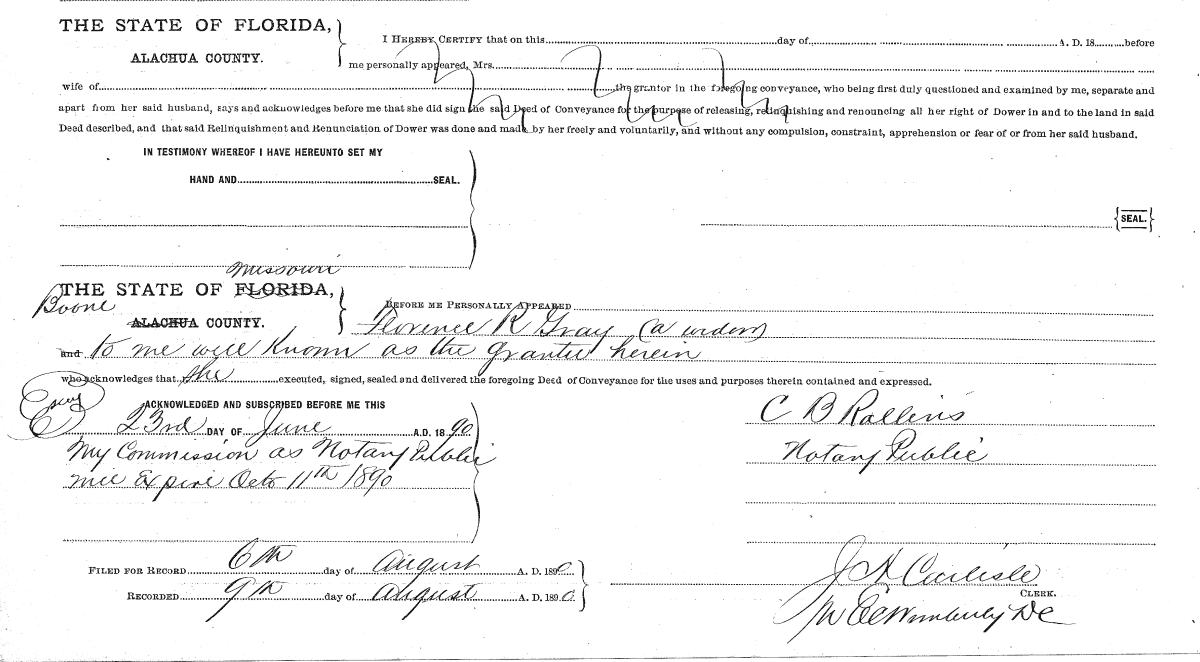 THE STATE OF FLORIDA,
ALACHUA COUNTY.
I HEREBY CERTIFY that on this day of A. D. 18 before
me personally appeared, Mrs.
wife of the grantor in the foregoing conveyance, who being first duly questioned and examined by me, separate and
apart from her said husband, says and acknowledges before me that she did sign the said Deed of Conveyance for the purpose of releasing, relinquishing and renouncing all her right of Dower in and to the land in said
Deed described, and that said Relinquishment and Renunciation of Dower was done and made by her freely and voluntarily, and without any compulsion, constraint, apprehension or fear of or from her said husband.
IN TESTIMONY WHEREOF I HAVE HEREUNTO SET MY
HAND AND SEAL.
{SEAL.}
Missouri
THE STATE OF FLORIDA,
Boone
ALACHUA COUNTY.
BEFORE ME PERSONALLY APPEARED
Florence R Gray (a widow)
and to me well known as the grantor herein
who acknowledges that she executed, signed, sealed and delivered the foregoing Deed of Conveyance for the uses and purposes therein contained and expressed.
ACKNOWLEDGED AND SUBSCRIBED BEFORE ME THIS
23rd DAY OF June A.D. 1890
My Commission as Notary Public
will Expire Octo 11th 1890
C B Rollins
Notary Public
FILED FOR RECORD 6th day of August A. D. 1890
RECORDED 9th day of August A. D. 1890
J H Carlisle
CLERK.
Wimberly DC